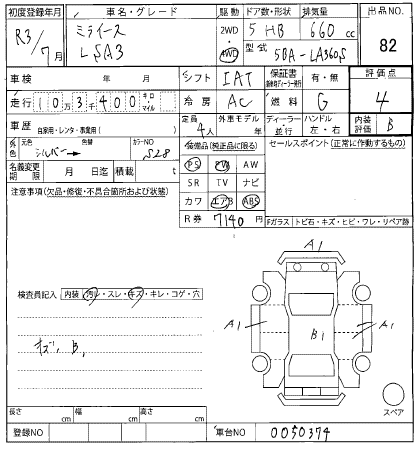 初度登録年月 車名・グレード 駆動 ドア数・形状 排気量 出品NO.
R3/7月 ミライース LSA3 2WD 4WD 5HB 660cc 82
型式 5BA-LA360S
車検 年 月 シフト IAT 保証書 有・無 評価点
走行 10万3千400 キロ・マイル 冷房 AC 燃料 G 4
車歴 自家用・レンタ・事業用( ) 定員 4人 外車モデル 年 ディーラー・並行 ハンドル 左・右 内装評価 B
外色 元色 シルバー 色替 カラーNO S28 装備品(純正品に限る) セールスポイント(正常に作動するもの)
名義変更期限 月 日迄 積載 t PS PW AW
注意事項(欠品・修復・不具合箇所および状態) SR TV ナビ
カワ エアB ABS
R券 7140円 Fガラス トビ石・キズ・ヒビ・ワレ・リペア跡
A1
検査員記入 内装 汚レ・スレ・キズ・キレ・コゲ・穴
A1 B1 A1
キズ、B1
スペア
長さ cm 幅 cm 高さ cm
登録NO 車台NO 0050374